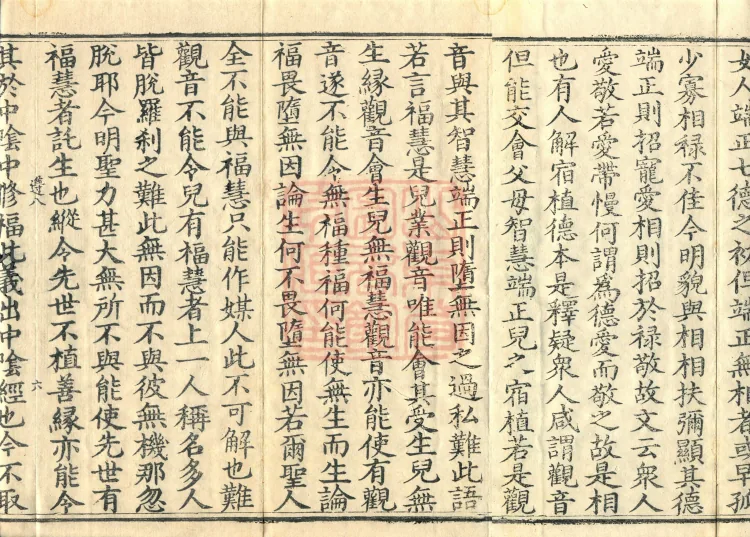 女人端正七德之初但端正無相者或早孤
少寡相祿不佳今明貌與相相扶彌顯其德
端正則招寵愛相則招於祿敬故文云衆人
愛敬若愛帶慢何謂爲德愛而敬之故是相
也有人解宿植德本是釋疑衆人咸謂觀音
但能交會父母智慧端正兒之宿植若是觀
音與其智慧端正則墮無因之過私難此語
若言福慧是兒業觀音唯能會其受生兒無
生緣觀音會生兒無福慧觀音亦能使有觀
音遂不能令無福種福何能使無生而生論
福畏墮無因論生何不畏墮無因若爾聖人
全不能與福慧只能作媒人此不可解也難
觀音不能令兒有福慧者上一人稱名多人
皆脫羅刹之難此無因而不與彼無機那忽
脫耶今明聖力甚大無所不與能使先世有
福慧者託生也縱令先世不植善緣亦能令
六
其於中陰中修福此義出中陰經也今不取